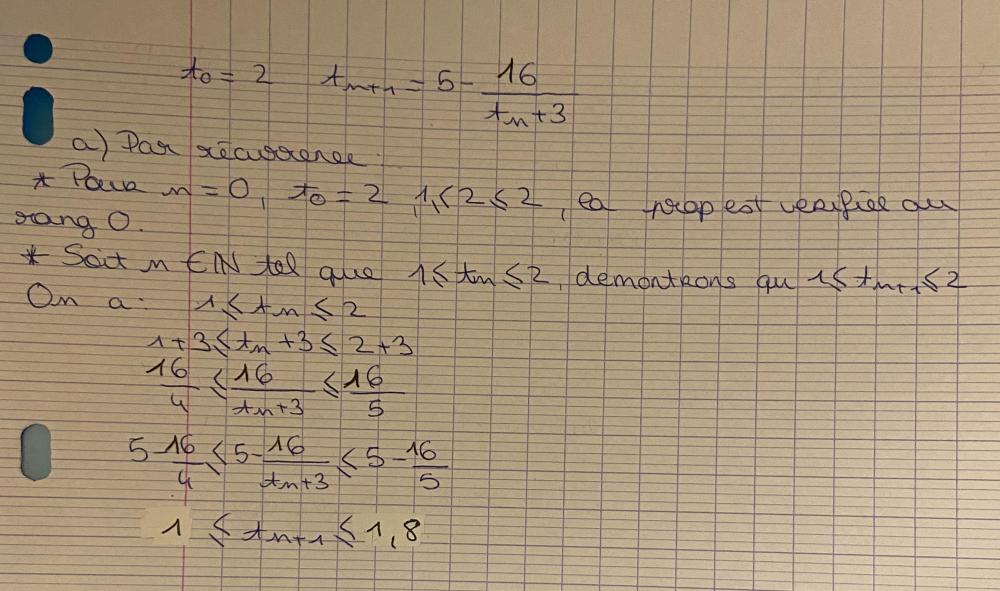 t₀ = 2 tₙ₊₁ = 5 - 16/(tₙ+3)
a) Par récurrence.
* Pour n = 0, t₀ = 2, 1 ≤ 2 ≤ 2, la prop est vérifiée au
rang 0.
* Soit n ∈ ℕ tel que 1 ≤ tₙ ≤ 2, démontrons qu 1 ≤ tₙ₊₁ ≤ 2
On a : 1 ≤ tₙ ≤ 2
1+3 ≤ tₙ+3 ≤ 2+3
16/4 ≤ 16/(tₙ+3) ≤ 16/5
5-16/4 ≤ 5-16/(tₙ+3) ≤ 5-16/5
1 ≤ tₙ₊₁ ≤ 1,8